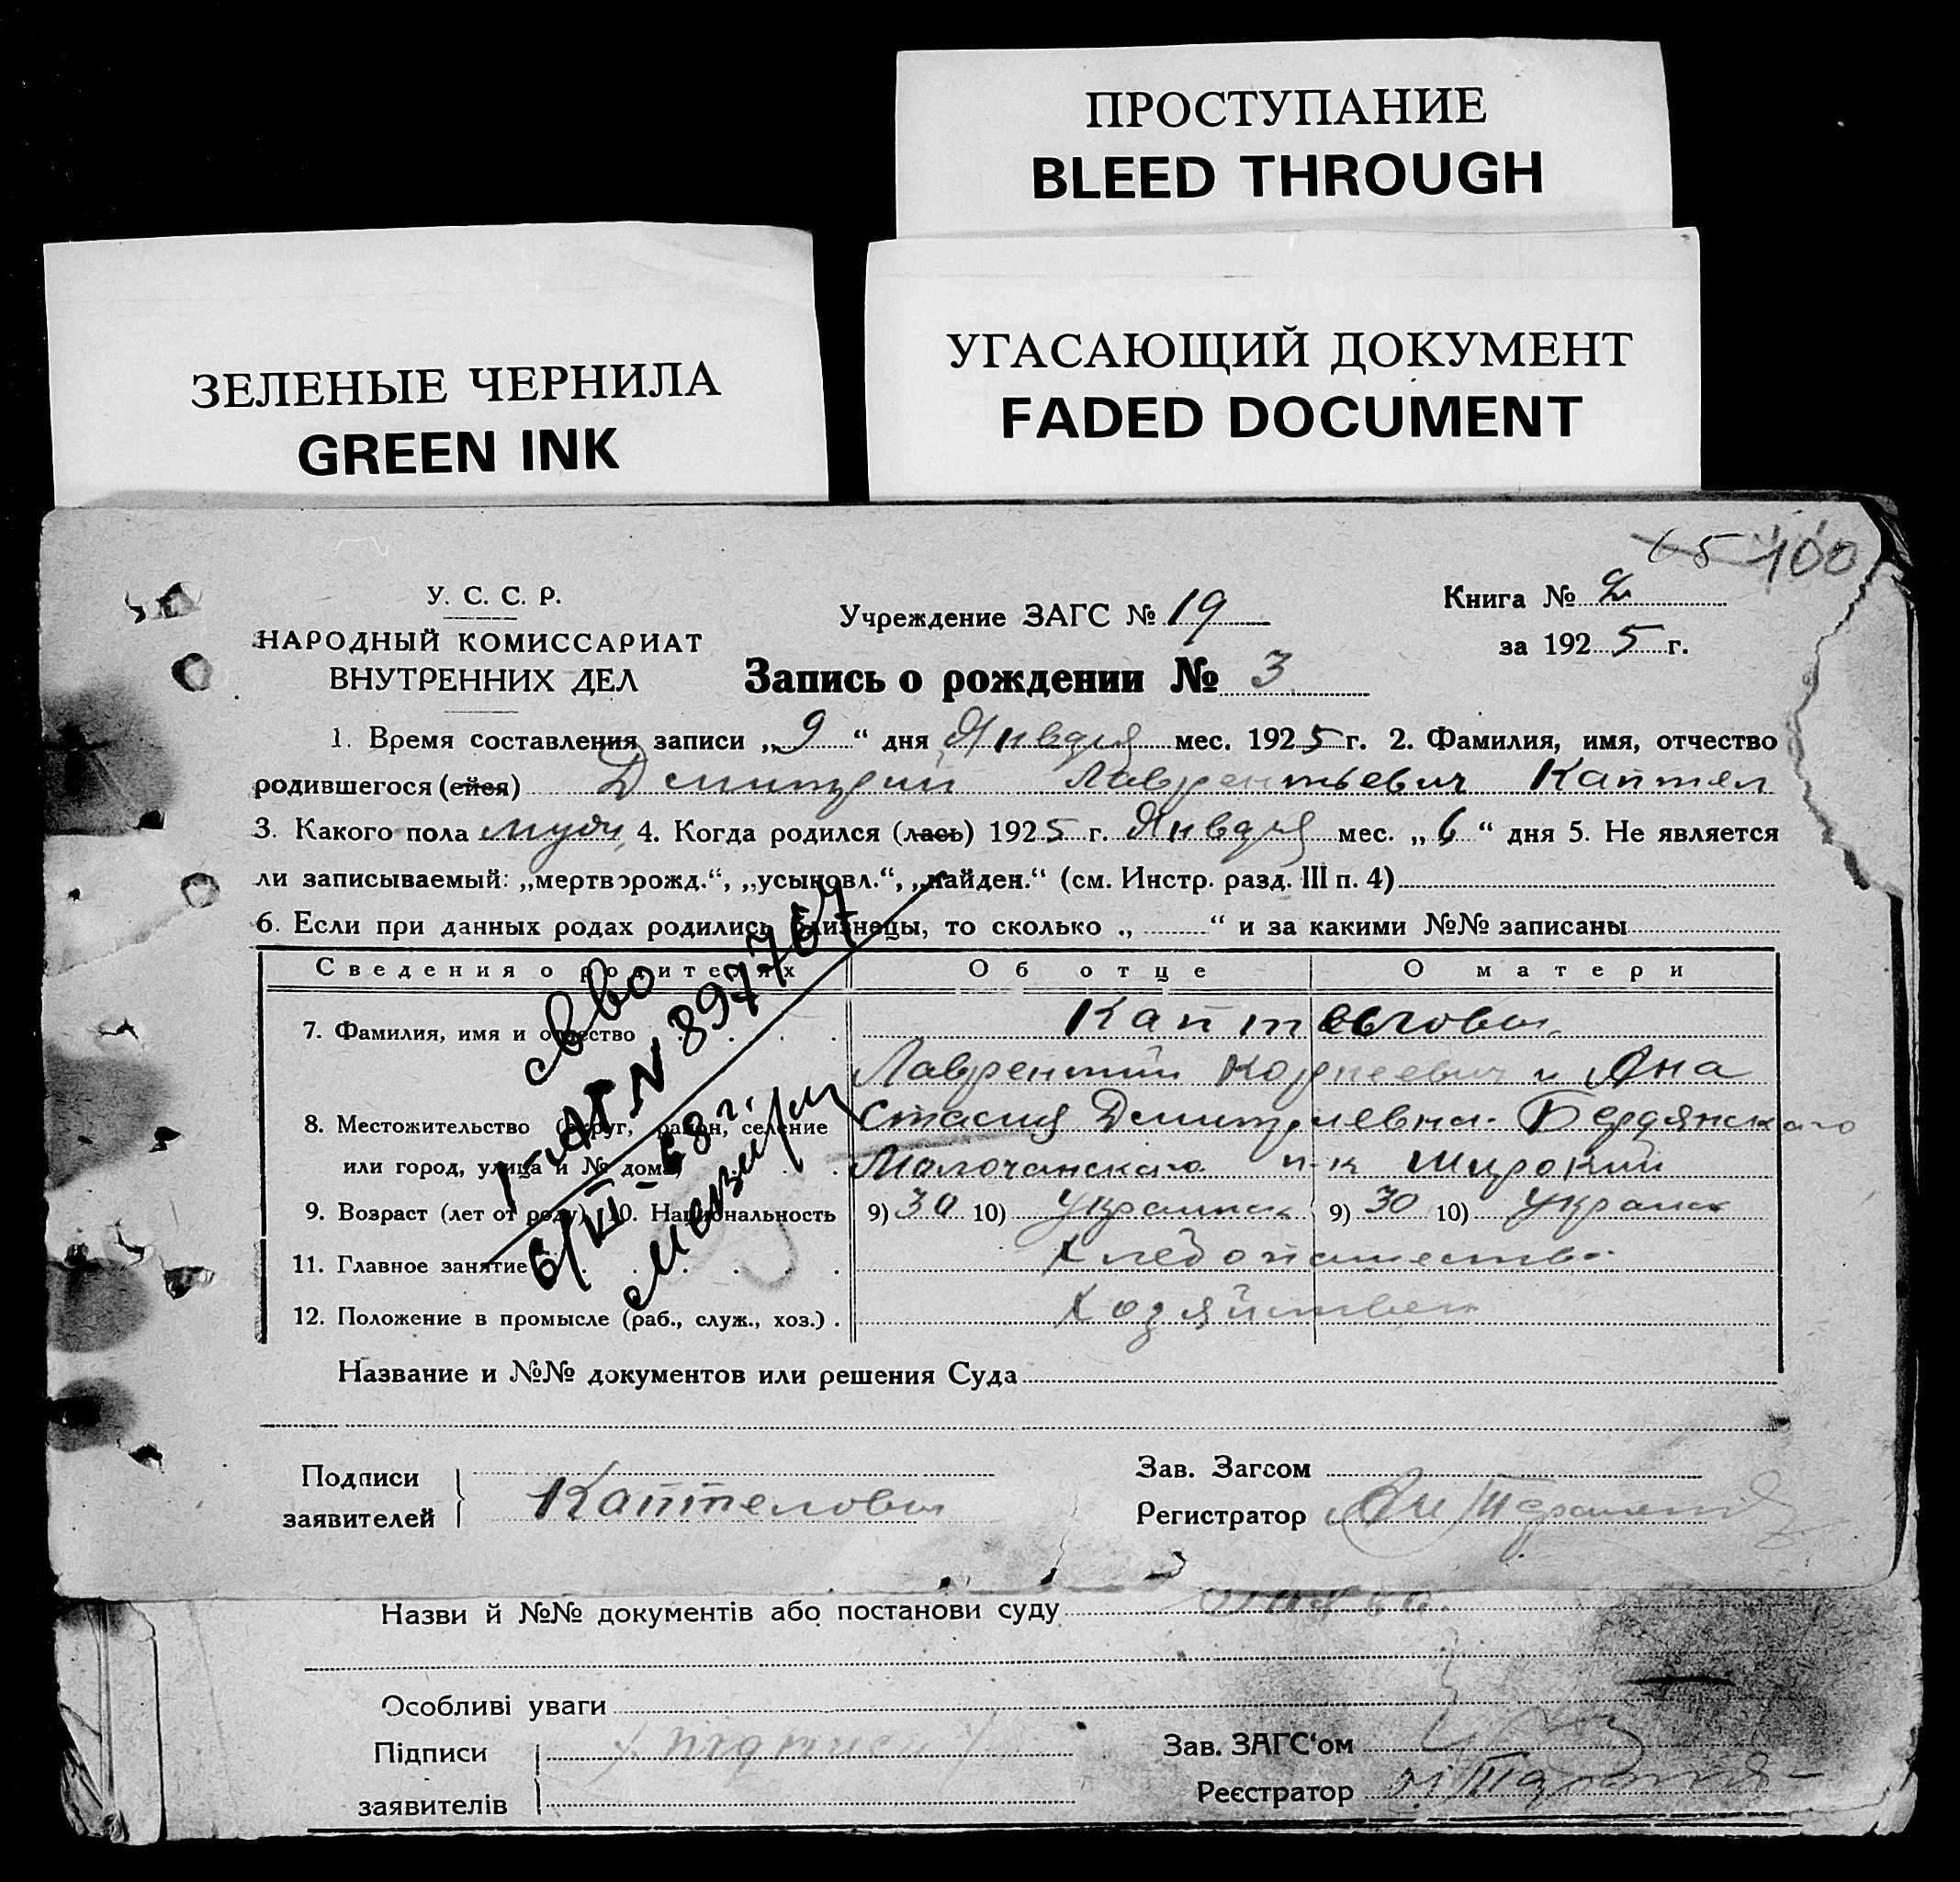 ПРОСТУПАНИЕ
BLEED THROUGH
УГАСАЮЩИЙ ДОКУМЕНТ
FADED DOCUMENT
ЗЕЛЕНЫЕ ЧЕРНИЛА
GREEN INK
65 100
У. С. С. Р.
НАРОДНЫЙ КОМИССАРИАТ
ВНУТРЕННИХ ДЕЛ
Учреждение ЗАГС № 19
Книга № 2
за 1925 г.
Запись о рождении № 3
1. Время составления записи „9“ дня Января мес. 1925 г. 2. Фамилия, имя, отчество
родившегося (ейся) Дмитрий Лаврентьевич Каптел
3. Какого пола муж, 4. Когда родился (лась) 1925 г. Января мес. „6“ дня 5. Не является
ли записываемый: „мертворожд.“, „усыновл.“, „найден.“ (см. Инстр. разд. III п. 4)
6. Если при данных родах родились близнецы, то сколько „ “ и за какими №№ записаны
Сведения о родителях Об отце О матери
7. Фамилия, имя и отчество
Лаврентий Корнеевич и Ана
8. Местожительство (округ, район, селение стасия Дмитриевна Бердянского
или город, улица и № дома) Молочанского п-к Широкий
9. Возраст (лет от роду) 10. Национальность 9) 30 10) Украинск 9) 30 10) Украинс
11. Главное занятие Хлебопашество
12. Положение в промысле (раб., служ., хоз.) Хозяйствен
Св-во
I-АП N 897767
6/VI-68 г.
Название и №№ документов или решения Суда
Подписи
заявителей Каптелова
Зав. Загсом
Регистратор
Назви й №№ документів або постанови суду
Особливі уваги
Підписи
заявителів
Зав. ЗАГС‘ом
Реєстратор